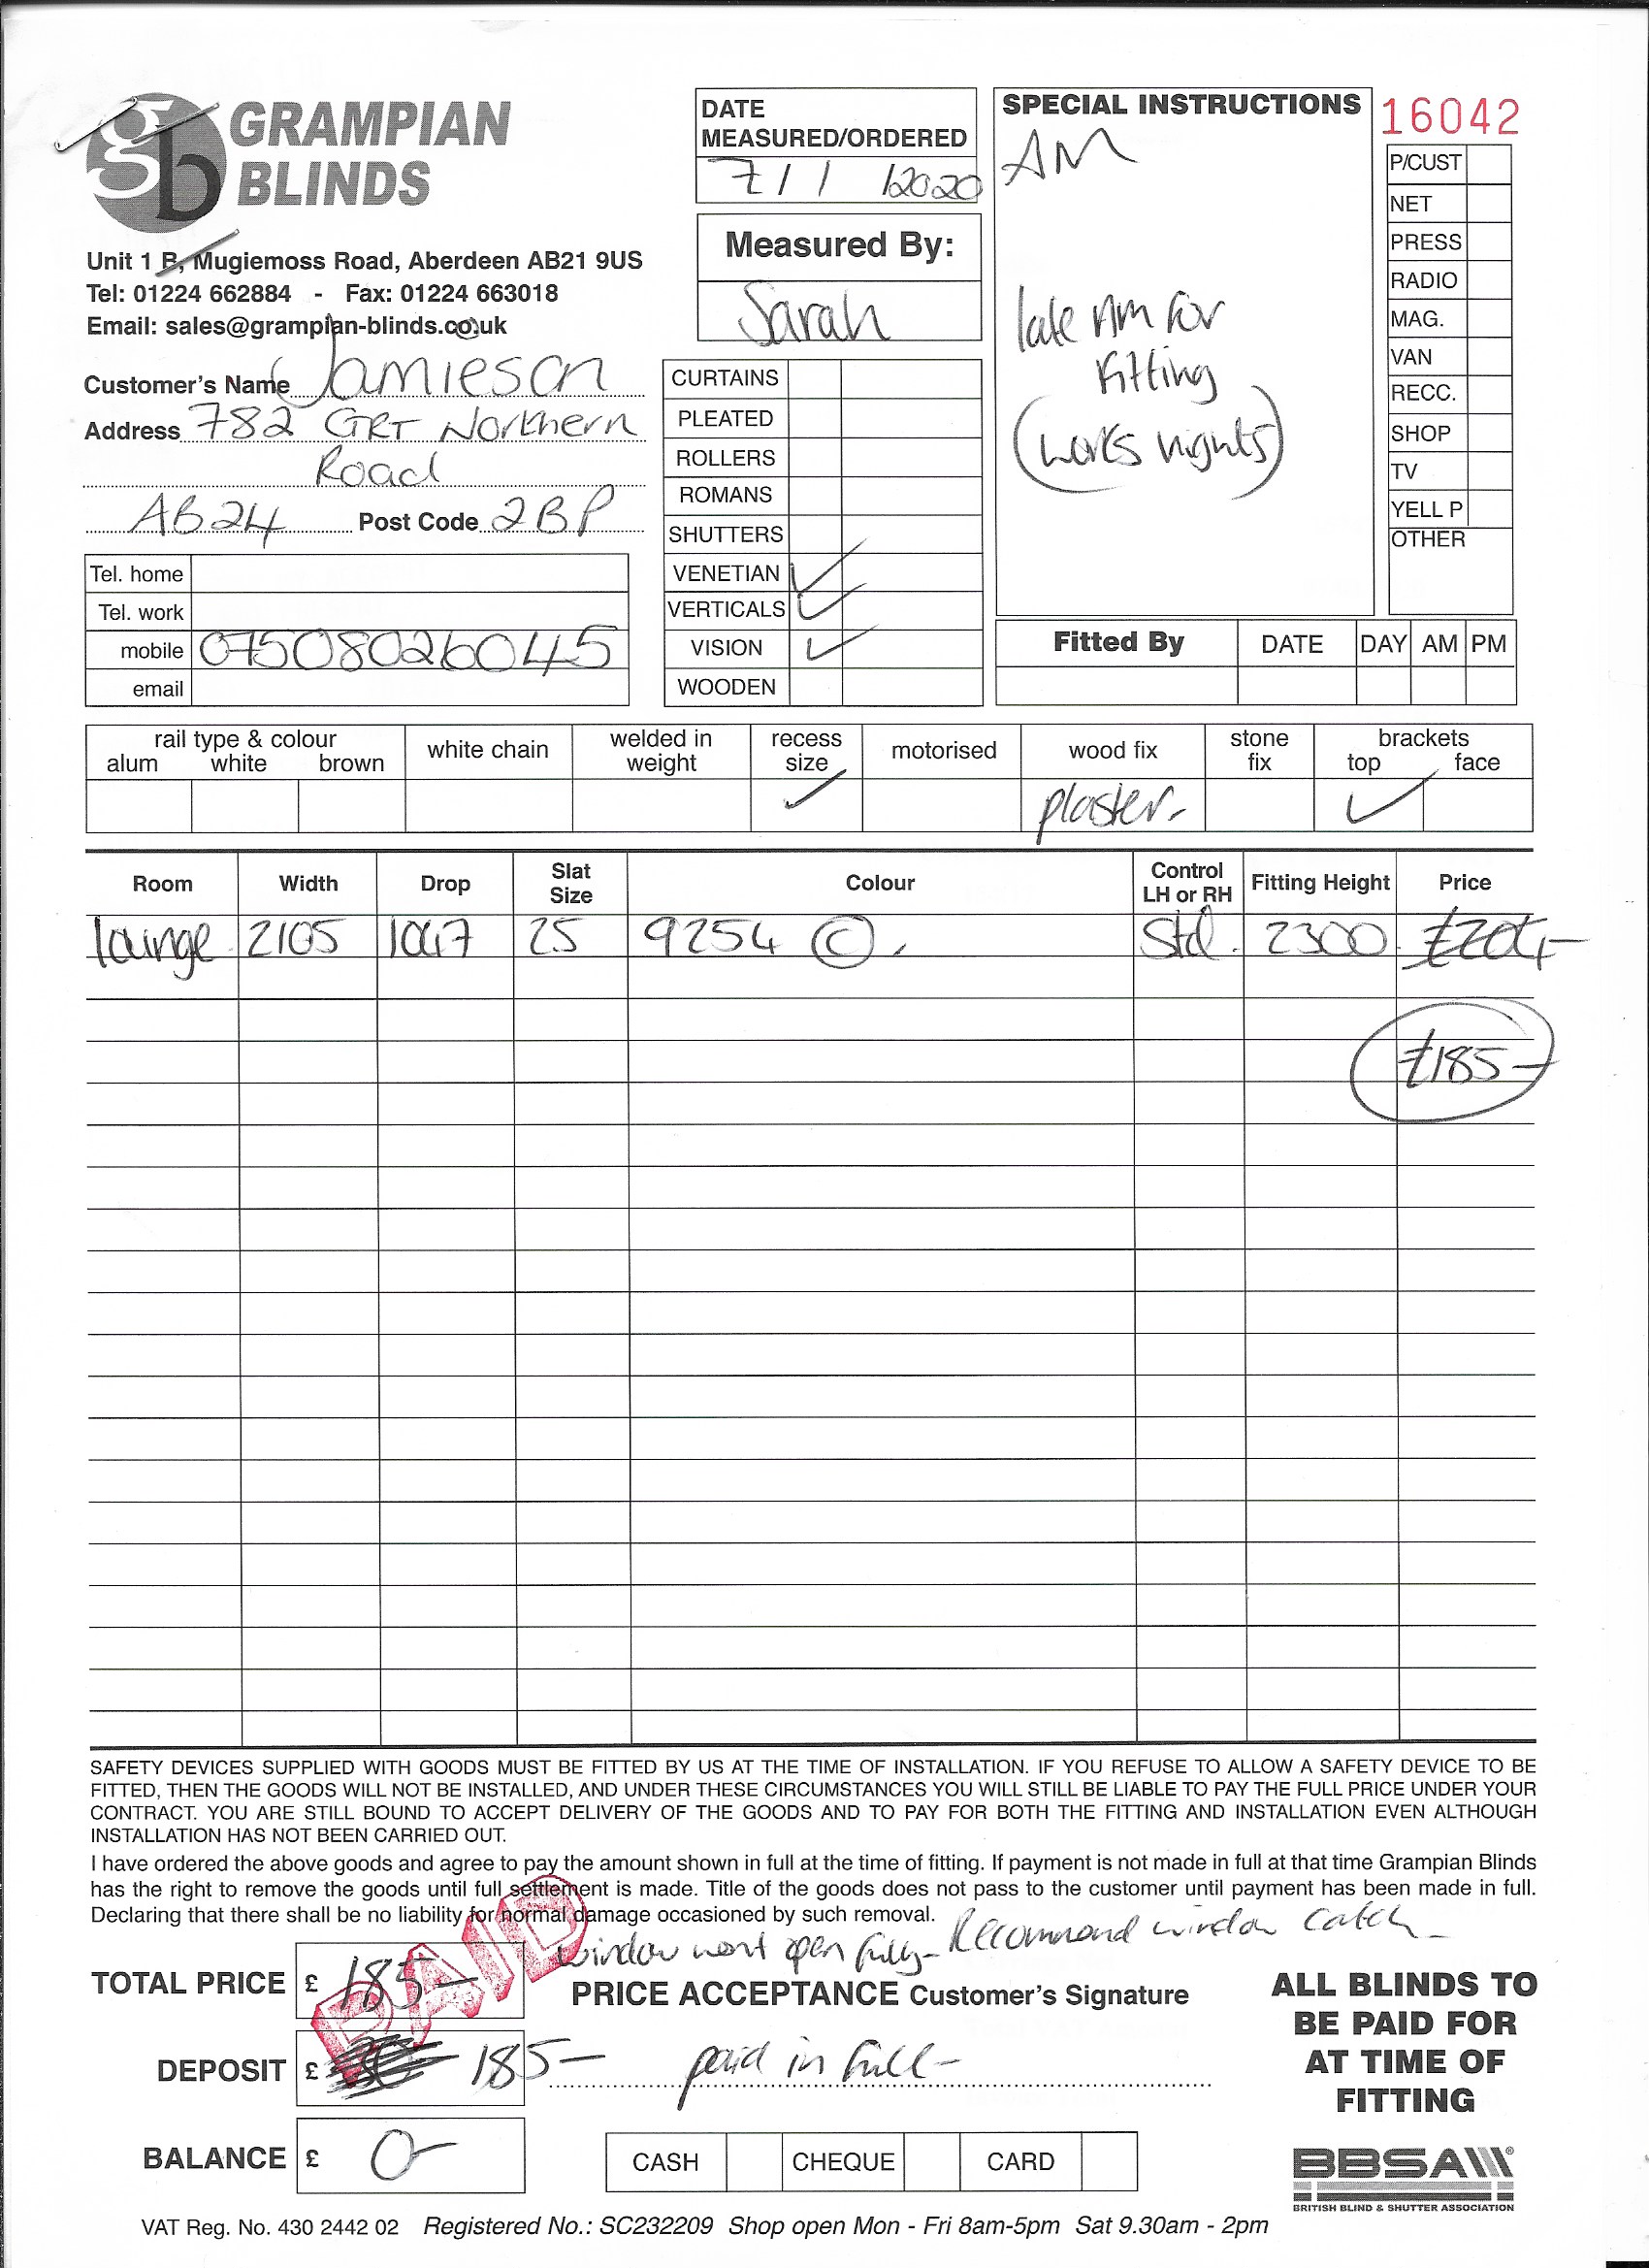 GRAMPIAN
BLINDS
Unit 1 B, Mugiemoss Road, Aberdeen AB21 9US
Tel: 01224 662884 - Fax: 01224 663018
Email: sales@grampian-blinds.co.uk
Customer's Name Jamieson
Address 782 GRT Northern
Road
AB24 Post Code 2BP
Tel. home
Tel. work
mobile 07508026045
email
DATE
MEASURED/ORDERED
7/1/2020
Measured By:
Sarah
CURTAINS
PLEATED
ROLLERS
ROMANS
SHUTTERS
VENETIAN ✓
VERTICALS ✓
VISION ✓
WOODEN
SPECIAL INSTRUCTIONS
AM
late Am for
Fitting
(works nights)
16042
P/CUST
NET
PRESS
RADIO
MAG.
VAN
RECC.
SHOP
TV
YELL P
OTHER
Fitted By DATE DAY AM PM
rail type & colour white chain welded in recess motorised wood fix stone brackets
alum white brown weight size fix top face
✓ plaster. ✓
Room Width Drop Slat Size Colour Control LH or RH Fitting Height Price
lounge 2105 1047 25 9254 ©. Std. 2300 £204-
£185-
SAFETY DEVICES SUPPLIED WITH GOODS MUST BE FITTED BY US AT THE TIME OF INSTALLATION. IF YOU REFUSE TO ALLOW A SAFETY DEVICE TO BE
FITTED, THEN THE GOODS WILL NOT BE INSTALLED, AND UNDER THESE CIRCUMSTANCES YOU WILL STILL BE LIABLE TO PAY THE FULL PRICE UNDER YOUR
CONTRACT. YOU ARE STILL BOUND TO ACCEPT DELIVERY OF THE GOODS AND TO PAY FOR BOTH THE FITTING AND INSTALLATION EVEN ALTHOUGH
INSTALLATION HAS NOT BEEN CARRIED OUT.
I have ordered the above goods and agree to pay the amount shown in full at the time of fitting. If payment is not made in full at that time Grampian Blinds
has the right to remove the goods until full settlement is made. Title of the goods does not pass to the customer until payment has been made in full.
Declaring that there shall be no liability for normal damage occasioned by such removal.
window wont open fully - Recommend window catch -
PAID
TOTAL PRICE £ 185-
PRICE ACCEPTANCE Customer's Signature
DEPOSIT £ 185-
paid in full -
BALANCE £ 0-
CASH CHEQUE CARD
ALL BLINDS TO
BE PAID FOR
AT TIME OF
FITTING
BBSA
BRITISH BLIND & SHUTTER ASSOCIATION
VAT Reg. No. 430 2442 02 Registered No.: SC232209 Shop open Mon - Fri 8am-5pm Sat 9.30am - 2pm